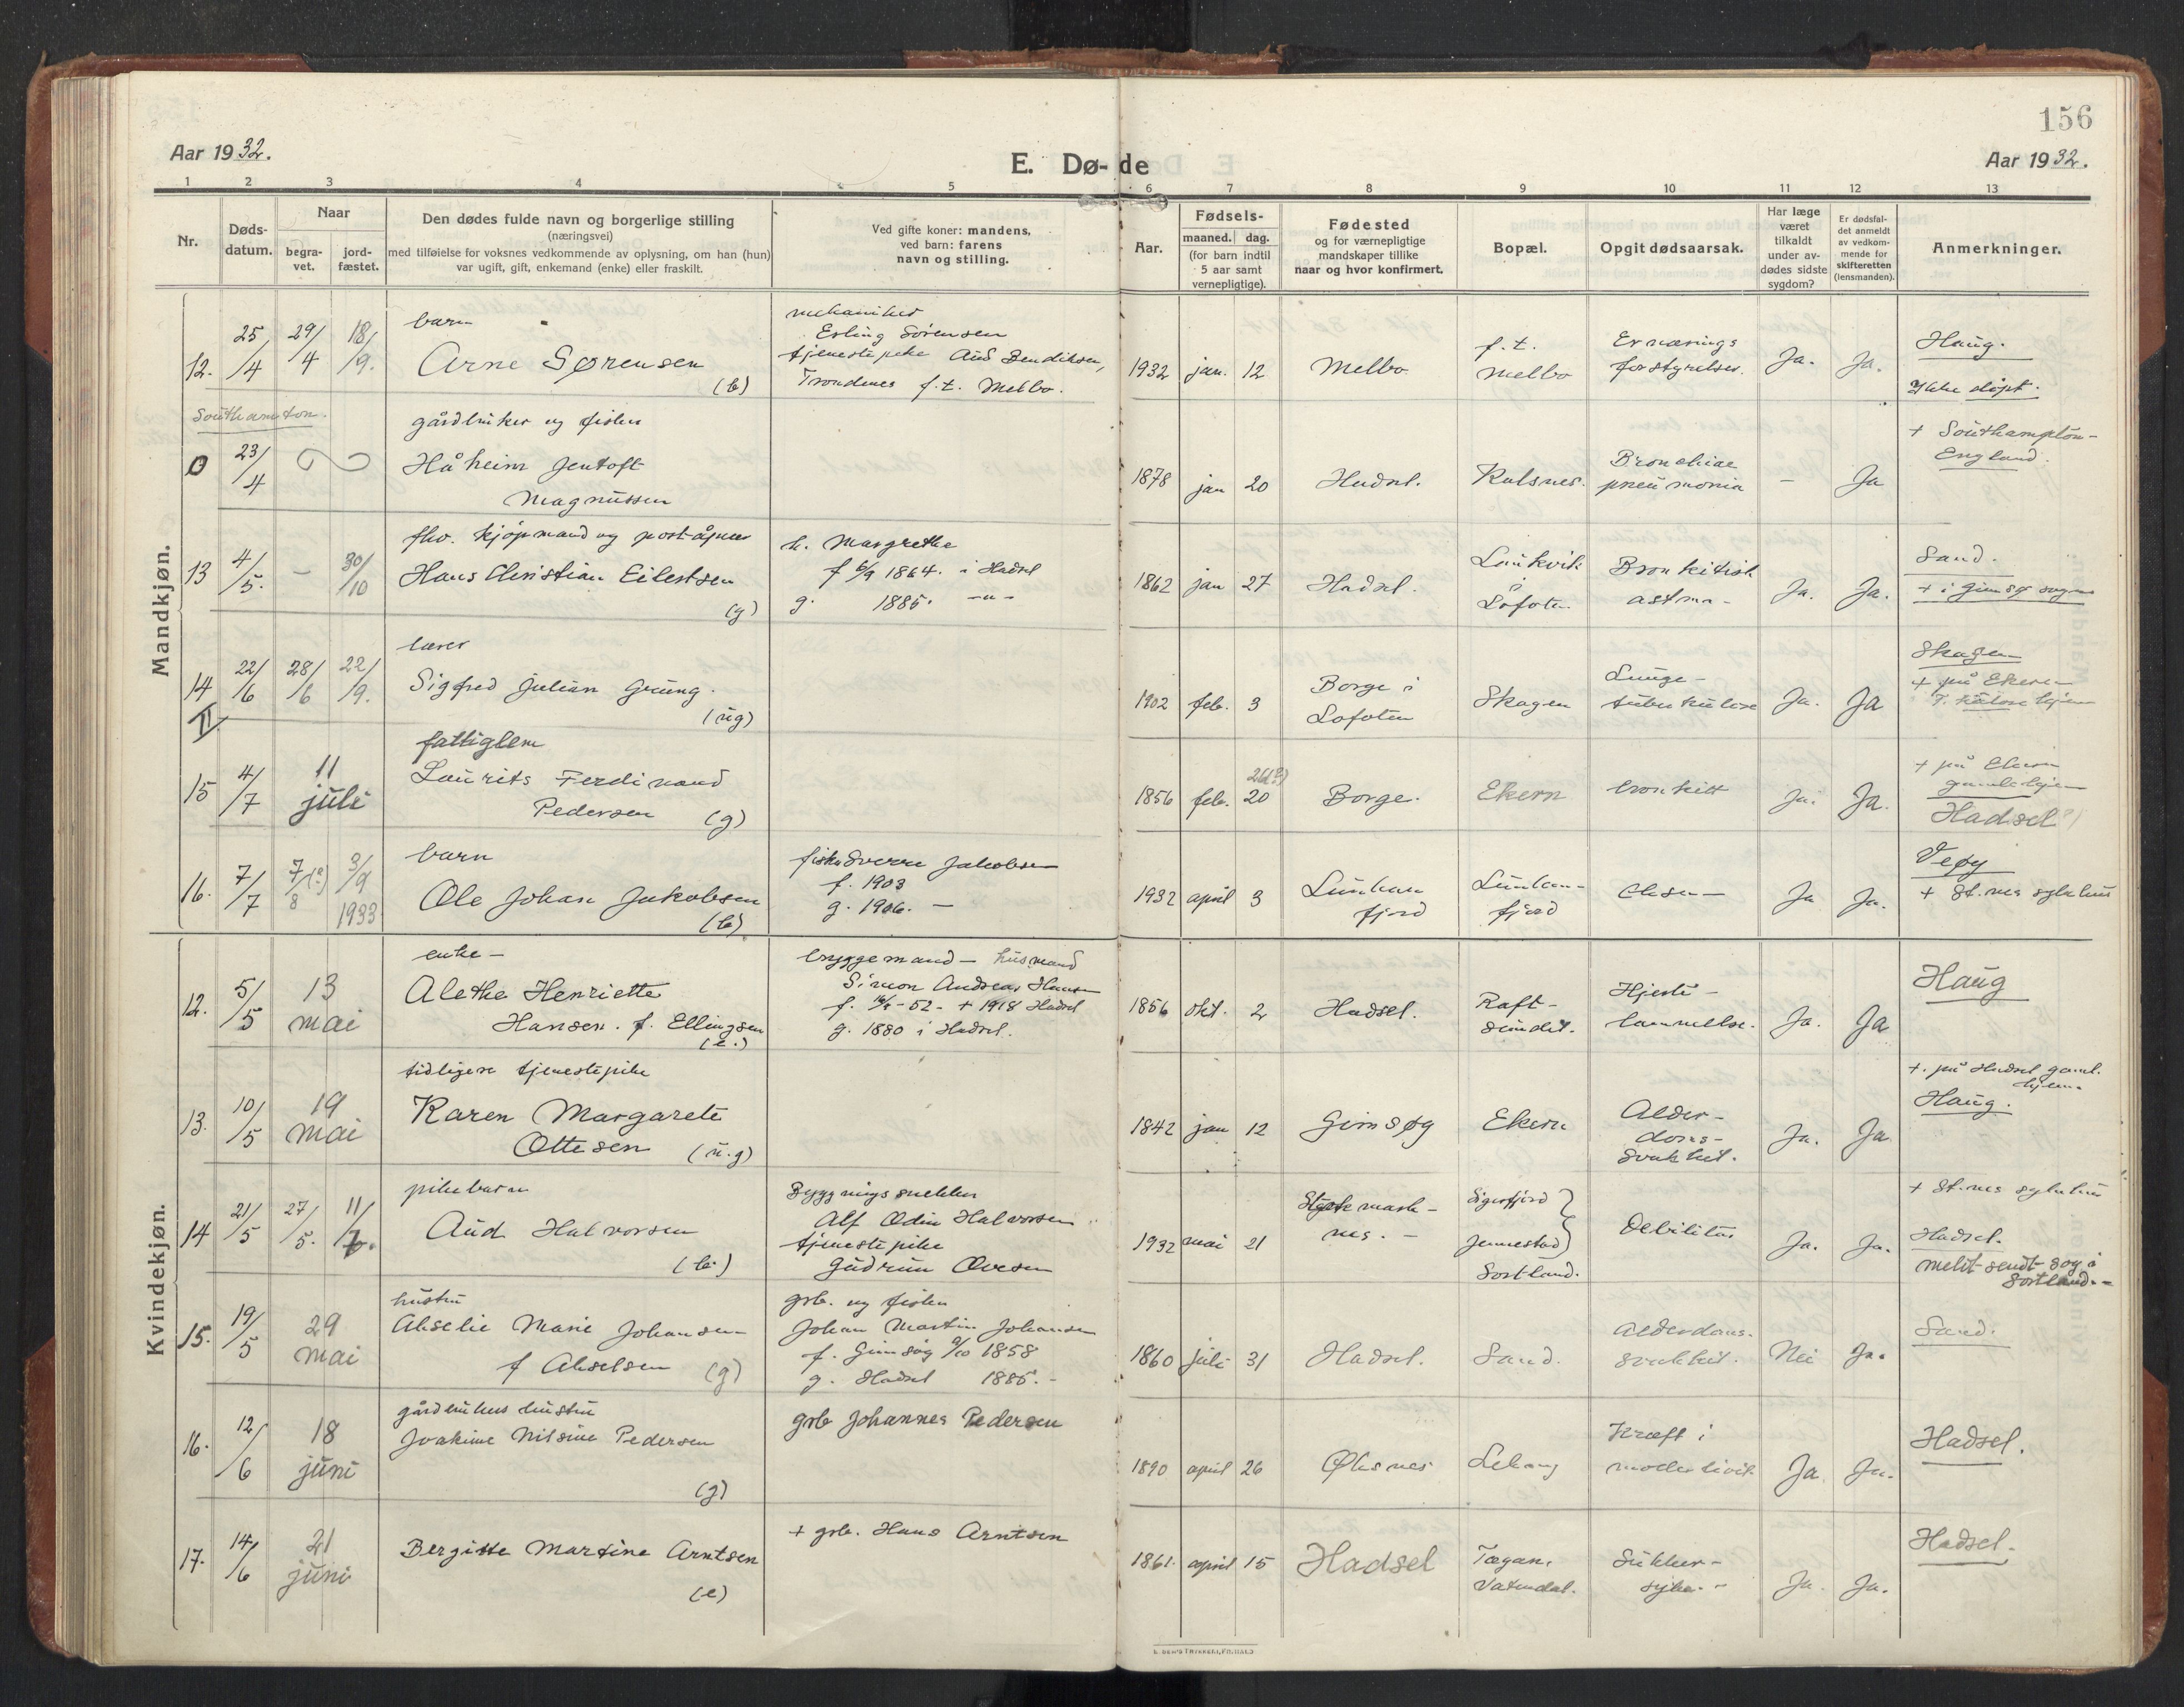 156
Aar 1932.
E. Dø-de
Aar 1932.
1 2 3 4 5 6 7 8 9 10 11 12 13
Nr.
Døds-
datum.
Naar
begra-
vet.
jord-
fæstet.
Den dødes fulde navn og borgerlige stilling
(næringsvei)
med tilføielse for voksnes vedkommende av oplysning, om han (hun)
var ugift, gift, enkemand (enke) eller fraskilt.
Ved gifte koner: mandens,
ved barn: farens
navn og stilling.
Aar.
Fødsels-
maaned. dag.
(for barn indtil
5 aar samt
vernepligtige).
Fødested
og for værnepligtige
mandskaper tillike
naar og hvor konfirmert.
Bopæl.
Opgit dødsaarsak.
Har læge
været
tilkaldt
under av-
dødes sidste
sygdom?
Er dødsfal-
det anmeldt
av vedkom-
mende for
skifteretten
(lensmanden).
Anmerkninger.
Mandkjøn.
12.
25/4
29/4
18/9.
barn
Arne Sørensen
(b)
mekaniker
Erling Sørensen
tjenestepike Aud Bendiksen,
Trondenes f.t. Melbo.
1932 jan. 12
Melbo
f.t.
Melbo
Ernærings
forstyrrelser.
Ja. Ja.
Haug.
Ikke døpt.
Southamton.
0
23/4
gårdbruker og fisker
Håheim Jentoft
Magnussen
1878 jan 20
Hadsel.
Kalsnes.
Bronchiae
pneumonia
- Ja
+ Southampton-
England.
13
4/5.
-
30/10
fhv. kjøpmand og postågner
Hans Christian Eilertsen
(g)
h. Margrethe
f 6/9 1864. i Hadsel
g. 1885. -"-
1862 jan 27
Hadsel.
Laukvik
i
Lofoten
Bronkitisk
astma-
Ja. Ja.
Sand.
+ i Gimsø sogn
14
II.
22/6
28/6
22/9.
lærer
Sigfred Julian Grung.
(ug)
1902 feb. 3
Borge i
Lofoten
Skagen
Lunge-
tuberkulose
Ja. Ja
Skagen
+ på Ekern
15
4/7
11
juli
fattiglem
Laurits Ferdinand
Pedersen (g)
26(?)
1856 feb. 20
Borge.
Ekern
bronkitt
Ja. Ja.
+ på Ekern
gamlehjem
Hadsel ?)
16.
7/7
7/8 (?)
3/9
1933
barn
Ole Johan Jakobsen
(b)
fisker Sverre Jakobsen
f. 1903
g. 1906. -
1932 april 3
Lunkan
fjord
Lunkan-
fjord
Ja Ja.
Veøy
+ St.nes sykehus
Kvindekjøn.
12.
5/5
13
mai
enke-
Alethe Henriette
Hansen. f. Ellingsen
(e.)
bryggemand - husmand
Simon Andreas Hansen
f. 16/5-52- + 1918 Hadsel
g. 1880 i Hadsel.
1856 okt. 2
Hadsel.
Raft-
sundet.
Hjerte-
lammelse.
Ja. Ja
Haug
13.
10/5
19
mai
tidligere tjenestepike
Karen Margarete
Ottesen (u.g)
1842 jan 12
Gimsøy
Ekern
Alder-
doms-
svakhet.
Ja. Ja
+. på Hadsel gaml.
hjem.
Haug.
14
21/5
27/5.
11/7.
pikebarn
Aud Halvorsen
(b.)
Bygningssnekker
Alf Odin Halvorsen
tjenestepike
Gudrun Ovesen
1932 mai 21
Stokmark-
nes. -
Sigerfjord
Jennestad
Sortland.
Debilitas
Ja. Ja.
+ St.nes sykehus
Hadsel.
meldt sendt sog i
Sortland.-
15.
19/5
29
mai
hustru
Akselie Marie Johansen
f Akselsen (g)
grb. og fisker
Johan Martin Johansen
f. Gimsøy 9/10 1858
g. Hadsel 1885.-
1860 juli 31
Hadsel.
Sand.
Alderdoms.
svakhet.
Nei Ja.
Sand.
16.
12/6
18
juni
gårdbrukers hustru
Joakime Nilsine Pedersen
(g)
grb Johannes Pedersen
1890 april 26
Øksnes
Lekang
Kræft i
moderlivet
Ja Ja.
Hadsel.
17.
14/6
21
juni
Bergitte Martine Arntsen
(e)
+ grb. Hans Arntsen
1861. april 15
Hadsel
Vatendal.
Sukker-
syke.-
Ja. Ja.
Hadsel.